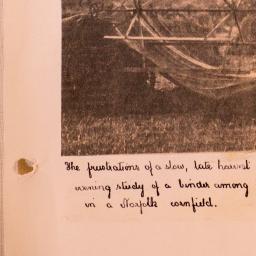 The frustrations of a slow, late harvest
evening study of a binder among
in a Norfolk cornfield.